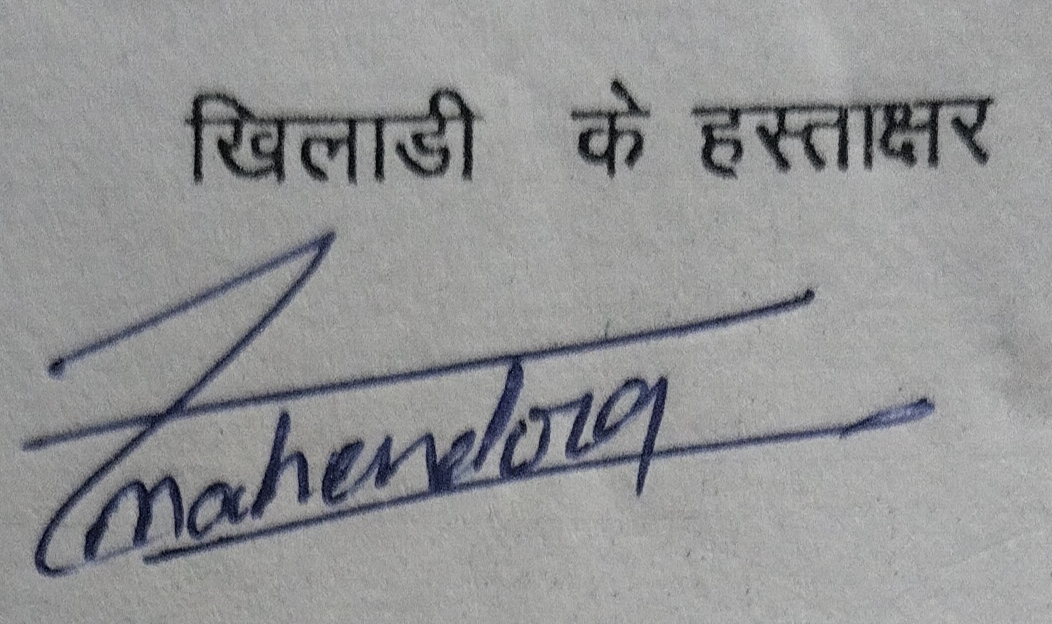 खिलाडी के हस्ताक्षर
Mahendra